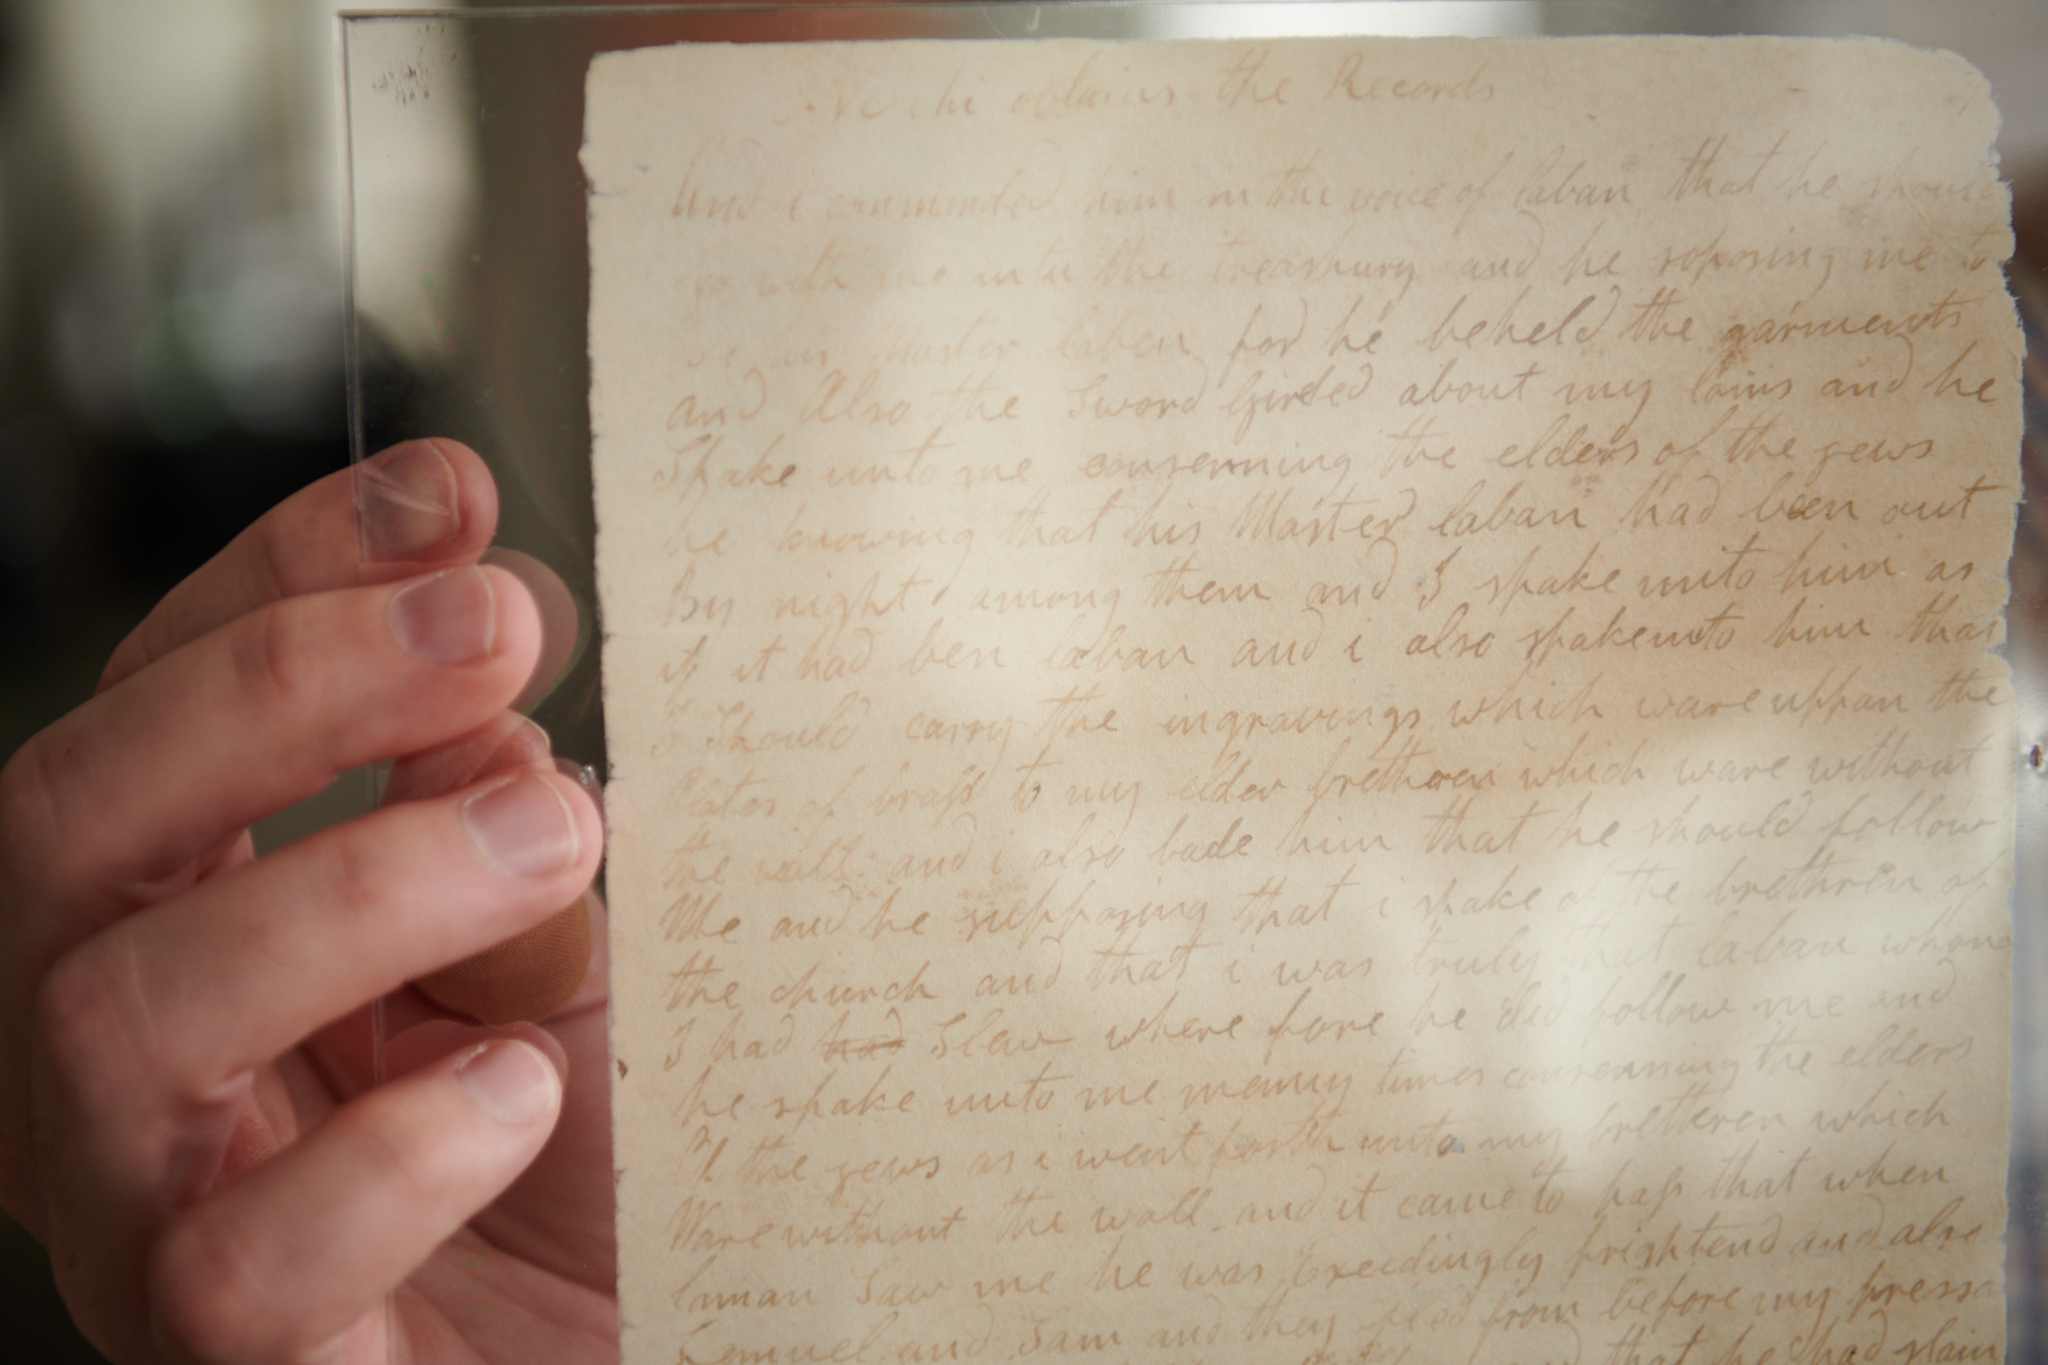 Ne hi obtains the Records
And i commanded him in the voice of laban that he should
go with me into the treashury and he soposing me to
be his Master laben for he beheld the garments
and Also the Sword Girded about my loins and he
Spake unto me conserning the elders of the yews
he knowing that his Master laban had been out
By night among them and I spake unto him as
if it had ben laban and i also spake unto him that
I Should carry the ingravings which ware uppan the
Plates of brass to my elder bretheren which ware without
the wall and i also bade him that he should follow
Me and he supposing that i spake of the brethren of
the church and that i was truly that laban whom
I had had Slew where fore he did follow me and
he spake unto me meany times conserning the elders
Of the yews as i went forth unto my bretheren which
Ware without the wall. and it came to pass that when
laman Saw me he was Exeedingly frightend and also
Lemuel and Sam and they fled from before my pressa
that he had slain